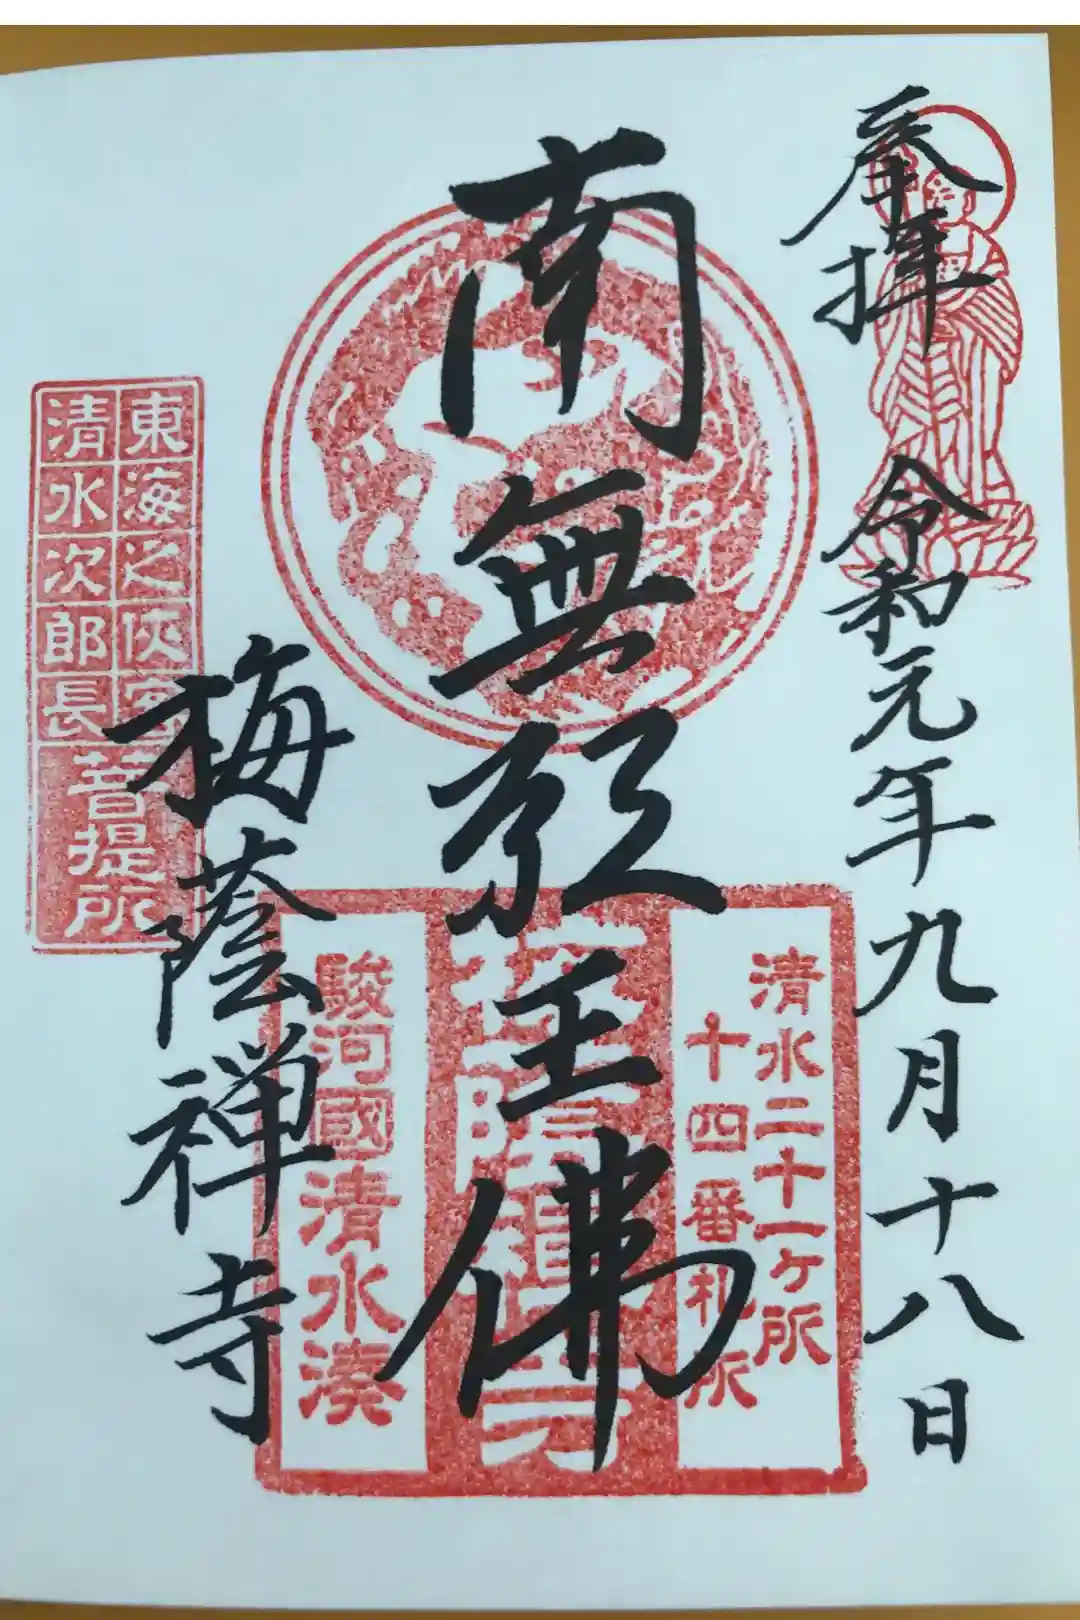 奉拝
令和元年九月十八日
清水二十一ヶ所
十四番札所
南無願王佛
梅蔭禅寺
駿河國清水湊
梅蔭禅寺
東海之侠客
清水次郎長
菩提所